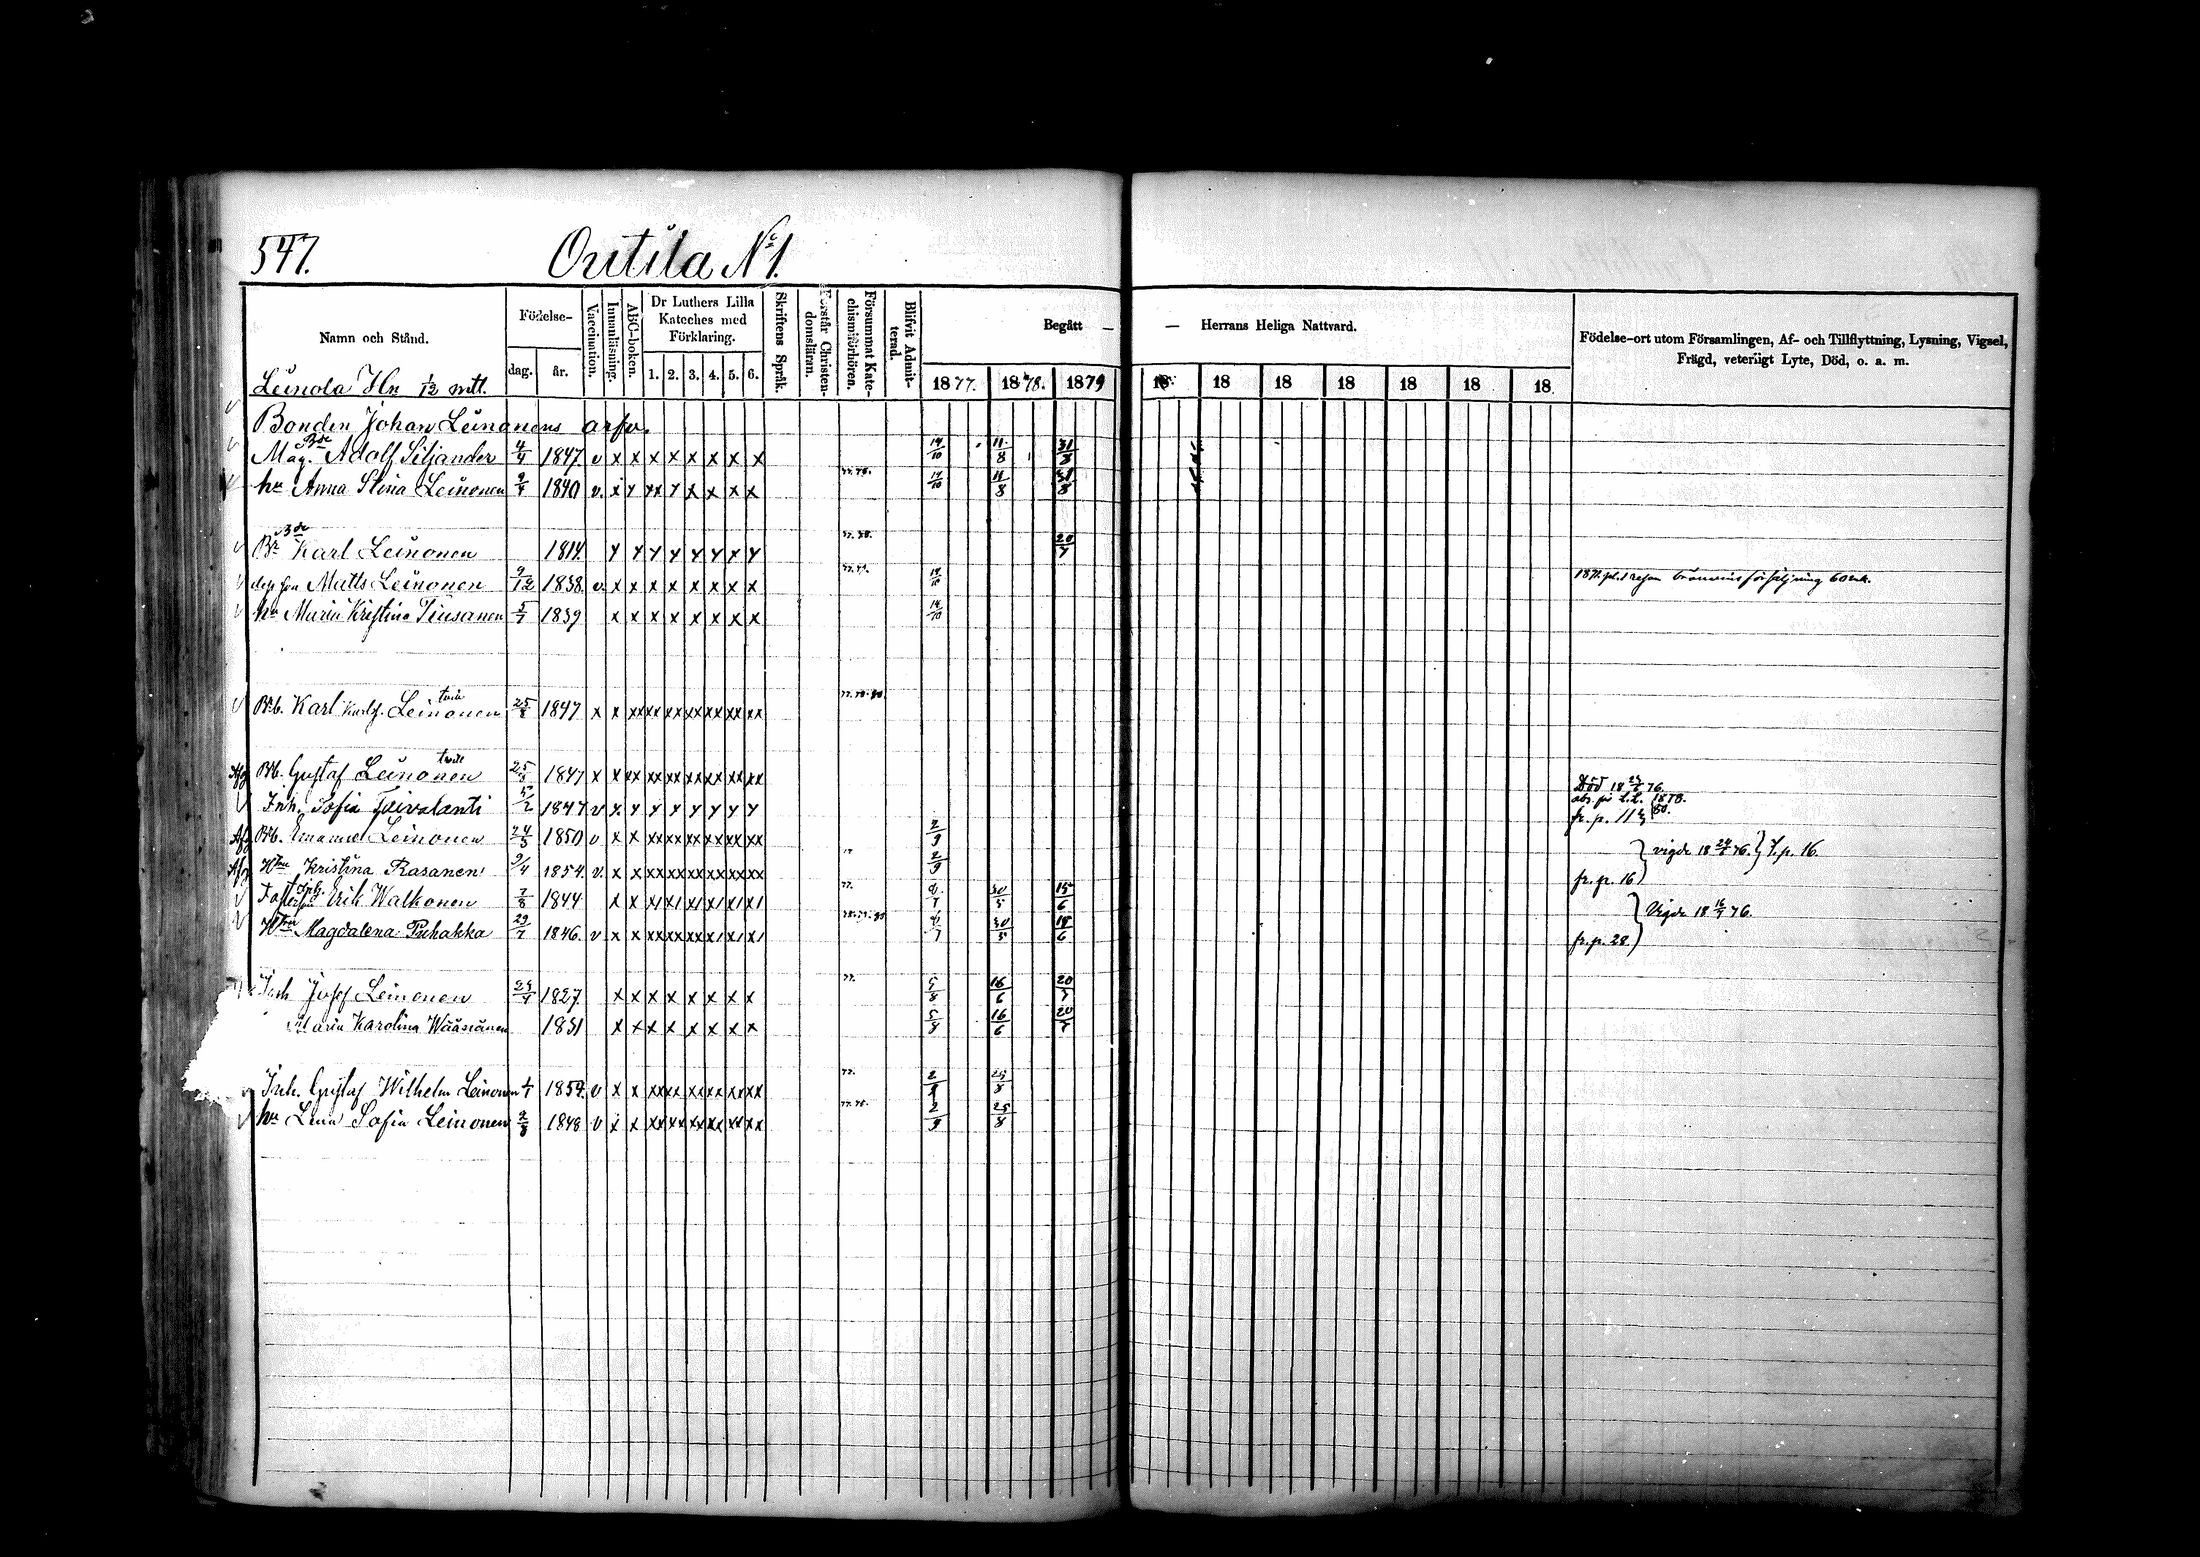 547. Outila N:1.
Namn och Stånd.
Födelse-
dag. år.
Vaccination.
Innanläsning.
ABC-boken.
Dr Luthers Lilla Kateches med Förklaring.
1. 2. 3. 4. 5. 6.
Skriftens Språk.
Förstår Christendomsläran.
Försummat Katechismiförhören.
Blifvit Admitterad.
Begått — — Herrans Heliga Nattvard.
1877. 1878. 1879 18 18 18 18 18 18 18.
Födelse-ort utom Församlingen, Af- och Tillflyttning, Lysning, Vigsel, Frägd, veterligt Lyte, Död, o. a. m.
Leinola Hn 1/2 mtl.
Bonden Johan Leinonens arfv.
Måg. Bde Adolf Siljander 4/4 1847. v x x x x x x x x 14/10 11/8 31/8
hu Anna Stina Leinonen 9/4 1840 v. x x xx x x x x x 14/10 11/8 31/8
Br Bde Karl Leinonen 1814 x x x x x x x x 20/7
des son Matts Leinonen 9/12 1838. v. x x x x x x x x 14/10
hu Maria Kristina Tiusanen 5/7 1839 x x x x x x x x 14/10
Brb. Karl Karls. Leinonen 25/8 1847 x x xx xx xx xx xx xx xx
Afg Brb. Gustaf Leinonen 25/8 1847 x x xx xx xx xx xx xx xx Död 18 76.
Inh. Sofia 5/2 1847 v x x x x x x x x fr. p. 11
Afg Brb. Emanuel Leinonen 24/5 1850 v x x xx xx xx xx xx xx 2/9 vigde 18 76. } f. p. 16.
Afg Hru Kristina Rasanen 9/4 1854. v. x x xx xx xx xx xx xx 2/9 fr. p. 16
Erik Walkonen 7/8 1844 30/5 15/6 Vigde 18 76.
Hru Magdalena Puhakka 29/7 1846. v x x 30/5 15/6 fr. p. 28
Inh Josef Leinonen 29/4 1827. x x x x x x x x 77. 5/8 16/6 20/7
Maria Karolina Wäänänen 1831 x x x x x x x x 5/8 16/6 20/7
Inh. Gustaf Wilhelm Leinonen 1854. v x x xx xx xx xx xx xx 77. 2/9 25/8
hu Lena Sofia Leinonen 2/8 1848 v x x xx xx xx xx xx xx 2/9 25/8